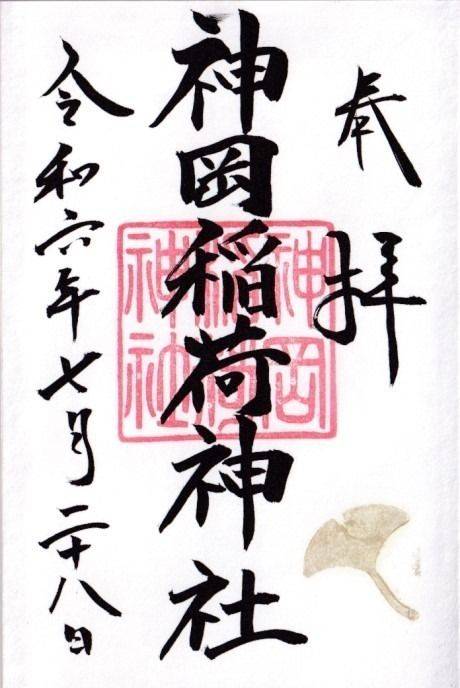 奉拝
神岡稲荷神社
神岡稲荷神社
令和六年七月二十八日